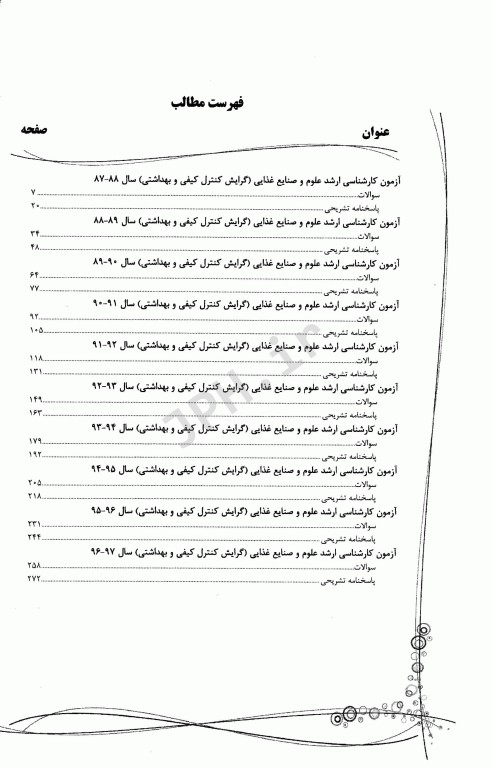 فهرست مطالب
عنوان صفحه
آزمون کارشناسی ارشد علوم و صنایع غذایی (گرایش کنترل کیفی و بهداشتی) سال ۸۸-۸۷
سوالات ۷
پاسخنامه تشریحی ۲۰
آزمون کارشناسی ارشد علوم و صنایع غذایی (گرایش کنترل کیفی و بهداشتی) سال ۸۹-۸۸
سوالات ۳۴
پاسخنامه تشریحی ۴۸
آزمون کارشناسی ارشد علوم و صنایع غذایی (گرایش کنترل کیفی و بهداشتی) سال ۹۰-۸۹
سوالات ۶۴
پاسخنامه تشریحی ۷۷
آزمون کارشناسی ارشد علوم و صنایع غذایی (گرایش کنترل کیفی و بهداشتی) سال ۹۱-۹۰
سوالات ۹۲
پاسخنامه تشریحی ۱۰۵
آزمون کارشناسی ارشد علوم و صنایع غذایی (گرایش کنترل کیفی و بهداشتی) سال ۹۲-۹۱
سوالات ۱۱۸
پاسخنامه تشریحی ۱۳۱
آزمون کارشناسی ارشد علوم و صنایع غذایی (گرایش کنترل کیفی و بهداشتی) سال ۹۳-۹۲
سوالات ۱۴۹
پاسخنامه تشریحی ۱۶۳
آزمون کارشناسی ارشد علوم و صنایع غذایی (گرایش کنترل کیفی و بهداشتی) سال ۹۴-۹۳
سوالات ۱۷۹
پاسخنامه تشریحی ۱۹۲
آزمون کارشناسی ارشد علوم و صنایع غذایی (گرایش کنترل کیفی و بهداشتی) سال ۹۵-۹۴
سوالات ۲۰۵
پاسخنامه تشریحی ۲۱۸
آزمون کارشناسی ارشد علوم و صنایع غذایی (گرایش کنترل کیفی و بهداشتی) سال ۹۶-۹۵
سوالات ۲۳۱
پاسخنامه تشریحی ۲۴۴
آزمون کارشناسی ارشد علوم و صنایع غذایی (گرایش کنترل کیفی و بهداشتی) سال ۹۷-۹۶
سوالات ۲۵۸
پاسخنامه تشریحی ۲۷۲
JPH.ir